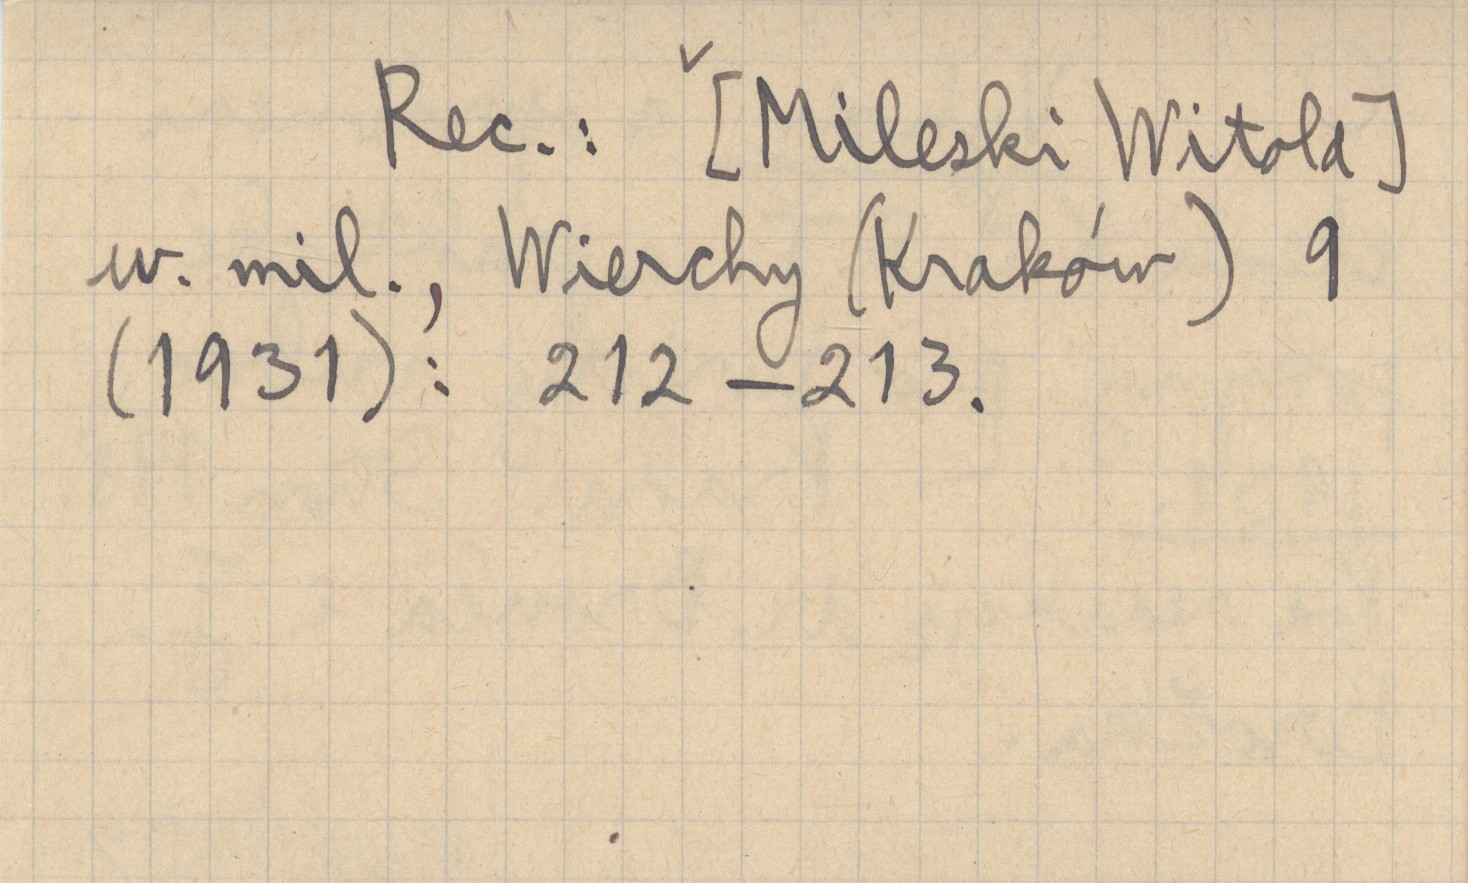 Rec.: ✓[Mileski Witold]
w. mil., Wierchy (Kraków) 9
(1931): 212–213.